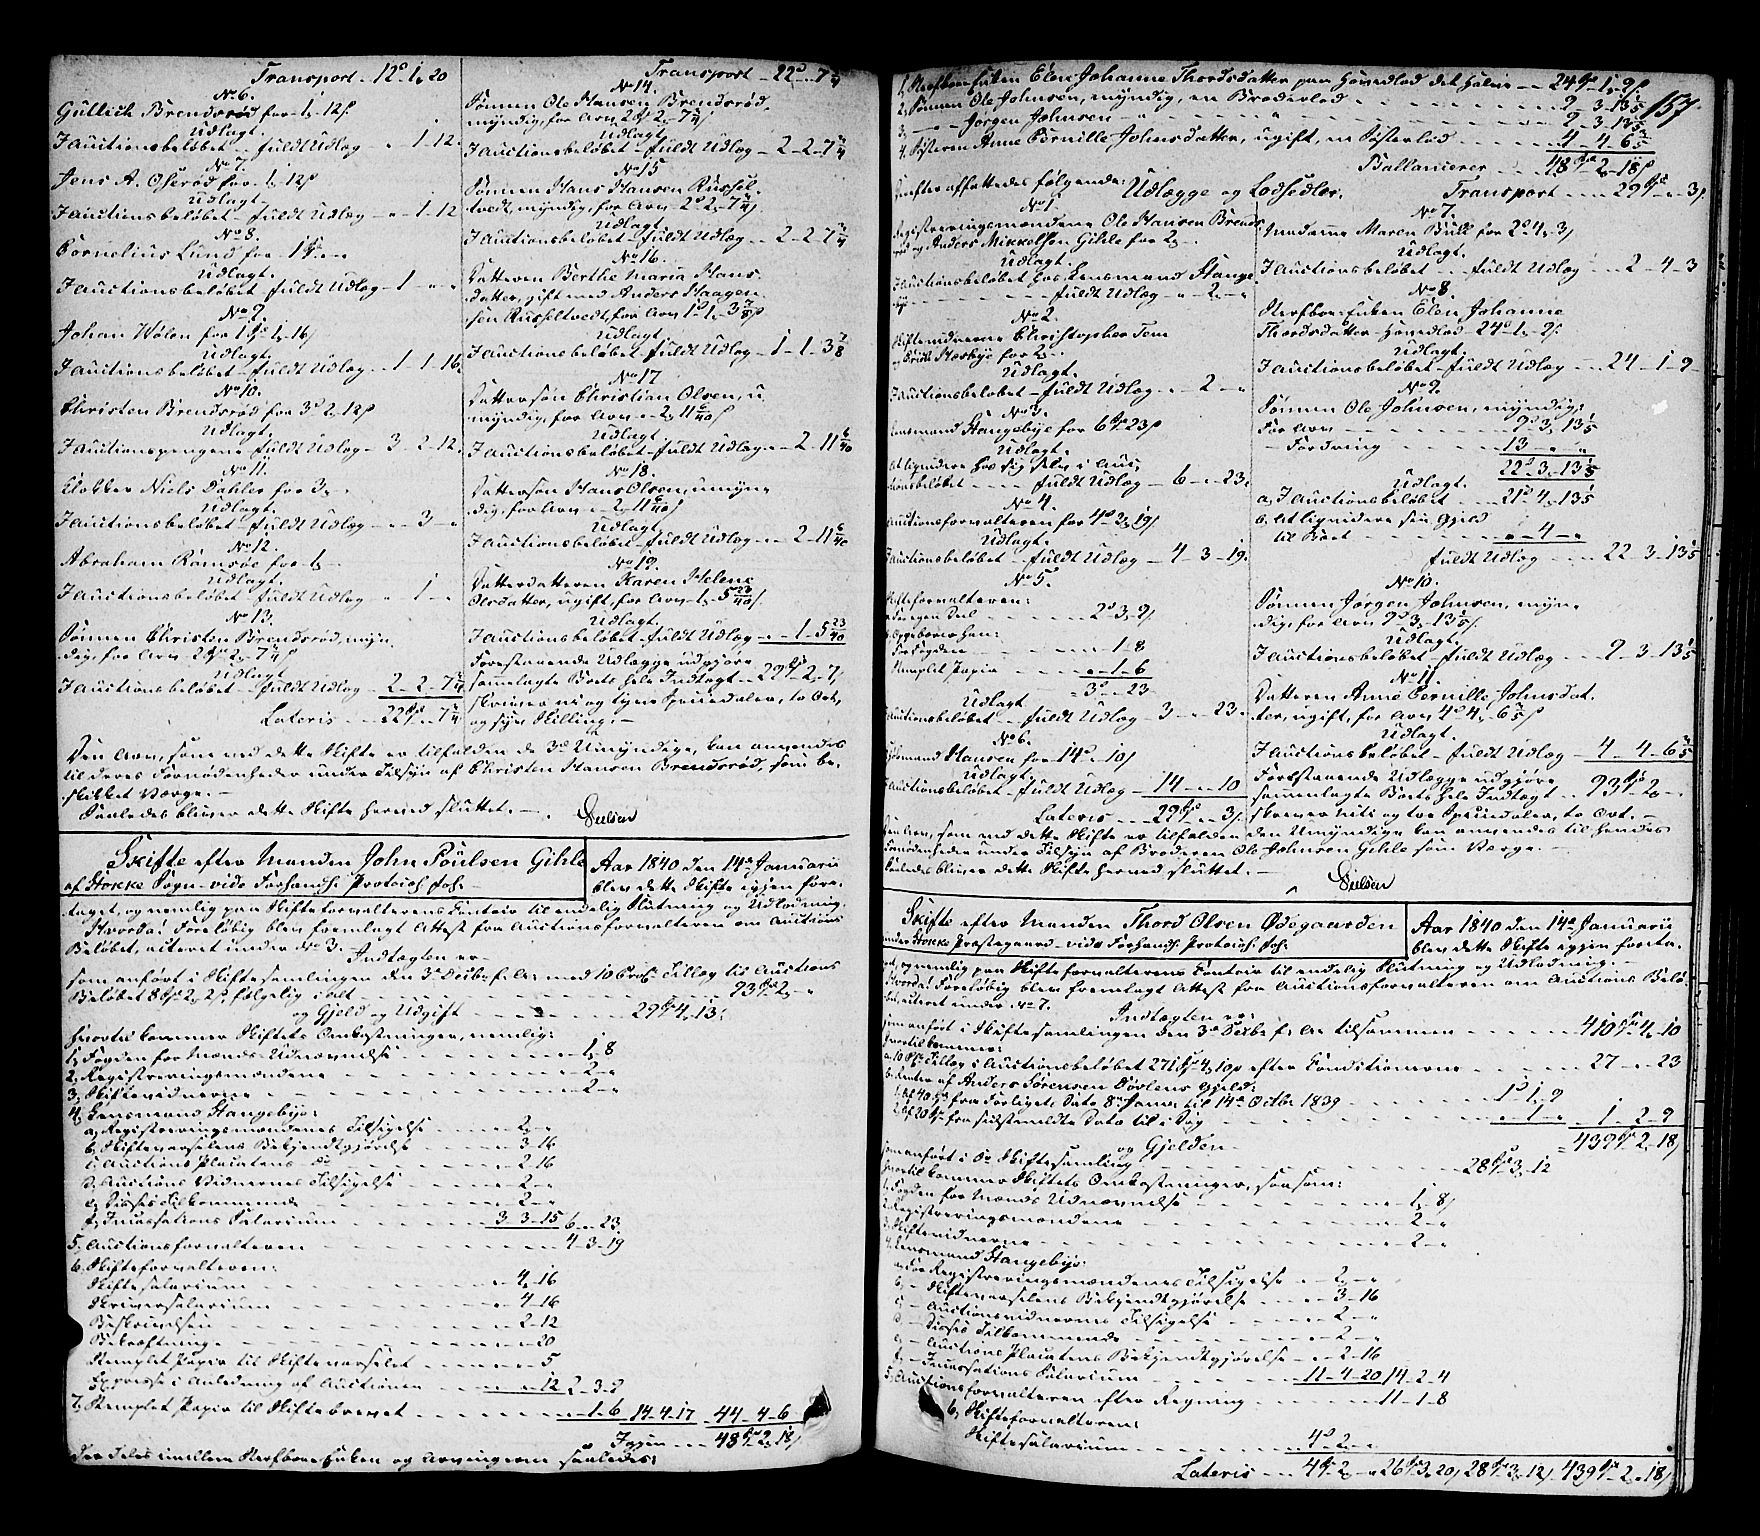 Transport - 12 1 20
No 6.
Gullich Brendsrød for 1 12 ß
Udlagt.
I Auctionsbeløbet - fuldt Udlæg - " 1 - 12.
No 7.
Jens A. Oserød for 1 12 ß
Udlagt.
I Auctionsbeløbet - fuldt Udlæg - " - 1 - 12
No 8.
Cornelius Lund for 1
Udlagt.
I Auctionsbeløbet - fuldt Udlæg - 1 - " - "
No 9.
Johan Wølen for 1 1 16
Udlagt.
I Auctionsbeløbet - fuldt Udlæg - 1 - 1 - 16.
No 10.
Christen Brendsrød for 3 2 12 ß
Udlagt.
I Auctionspengene fuldt Udlæg - 3 - 2 - 12.
No 11.
Klokker Niels Dahler for 3
Udlagt.
I Auctionsbeløbet - fuldt Udlæg - " - 3 - "
No 12.
Abraham Ramsøe for 1
Udlagt.
I Auctionsbeløbet fuldt Udlæg - " 1 - "
No 13.
Sønnen Christen Brendsrød, myn-
dig, for Arv 2 2 7
Udlagt
I Auctionsbeløbet - fuldt Udlæg - 2 - 2 - 7
Lateris - 22 - " - 7
Transport - 22 - 7
No 14.
Sønnen Ole Hansen Brendsrød,
myndig, for Arv 2 2 7
Udlagt.
I Auctionsbeløbet - fuldt Udlæg - 2 - 2 - 7
No 15
Sønnen Hans Hansen Russel-
tvedt, myndig, for Arv 2 2 7
Udlagt.
I Auctionsbeløbet - fuldt Udlæg - 2 - 2 - 7
No 16.
Datteren Berthe Maria Hans-
datter, gift med Anders Haagen-
sen Russeltvedt, for Arv 1 1 3
Udlagt
I Auctionsbeløbet - fuldt Udlæg - 1 - 1 - 3 7/8
No 17
Dattersøn Christian Olsen, u-
myndig, for Arv 2 11 6/40
Udlagt
I Auctionsbeløbet - fuldt Udlæg - " 2 - 11 6/40
No 18.
Dattersøn Hans Olsen, umyn-
dig, for Arv 2 11 6/40
Udlagt
I Auctionsbeløbet - fuldt Udlæg - " 2 - 11 6/40
No 19.
Datterdatteren Karen Helene
Olsdatter, ugift, for Arv 1 5 23/40
Udlagt.
I Auctionsbeløbet - fuldt Udlæg - " 1 - 5 23/40
Forestaaende Udlægge udgjøre
sammenlagte Boets hele Indtægt - 29 2 7
skriver ni og tyve Speciedaler, to Ort,
og syv Skilling. -
Den Arv, som ved dette Skifte er tilfalden de 3de Umyndige, kan anvendes
til deres Fornødenheder under Tilsyn af Christen Hansen Brendsrød, som be-
skikket Værge. -
Saaledes bliver dette Skifte herved sluttet. -
Skifte efter Manden John Poulsen Gihle
af Stokke Sogn - vide Forhands Protocol Fol:
Aar 1840 den 14de Januarii
blev dette Skifte igjen fore-
taget, og nemlig paa Skifteforvalterens Contoir til endelig Slutning og Udlodning.
Hvorda! Foreløbig blev fremlagt Attest fra Auctionsforvalteren om Auctions
Beløbet, acteret under No 3.
Indtægten er
som anført i Skiftesamlingen den 3de Octbr f. A. med 10 Proc. Tillæg til Auctions
Beløbet 8 2 2 følgelig i alt - 93 2 "
og Gjeld og Udgift - 29 4 13
Hvortil kommer Skiftets Omkostninger, nemlig:
1, Fogden for Mænds Udnævnelse - " 1 - 8
2, Registreringsmændene - " 2 - "
3, Skiftevidnerne - " 2 - "
4, Lensmand Stangebye:
a, Registreringsmændenes Tilsigelse - " 2 - "
b, Skifteværselens Bekjendtgjørelse - " 3 - 16
c, Auctions Placatens do - " 2 - 16
d, Auctions Vidnernes Tilsigelse - " 2 - "
e, Disses Tilkommende - " 2 - "
f, Incassations Salarium - 3 - 3 - 15 6 - " - 23
5, Auctionsforvalteren - 4 - 3 - 19
6, Skifteforvalteren:
Skiftesalarium - " 4 - 16
Skriversalarium - " 4 - 16
Beskrivelsen - " 2 - 12
Bekræftning - " " - 20
Stemplet Papir til Skifteværselet - " " - 5
Expresse i Anledning af Auctionen - " " 12 2 - 3 - 9
7, Stemplet Papir til Skiftebrevet - " 1 - 6 14 - 4 - 17 44 - 4 - 6
Igjen - 48 2 18
Der deles imellem Sterfboe Enken og Arvingerne saaledes:
157
1, Sterfboe Enken Elen Johanne Thordsdatter paa Hovedlod det halve - 24 1 9
2, Sønnen Ole Johnsen, myndig, en Broderlod - 9 - 3 - 13
3, - Jørgen Johnsen - 9 - 3 - 13
4, Søsteren Anne Pernille Johnsdatter, ugift, en Søsterlod - 4 - 4 - 6
Ballancerer - 48 2 18
Herefter affattedes følgende: Udlægge og Lodsedler.
No 1.
Registreringsmændene Ole Hansen Brends-
rød og Anders Mikkelsen Gihle for 2
Udlagt.
I Auctionsbeløbet hos Lensmand Stange-
bye - fuldt Udlæg - " - 2 - "
No 2.
Skiftevidnerne Christopher Tem
Udlagt.
I Auctionsbeløbet - fuldt Udlæg - " 2 - "
No 3.
Lensmand Stangebye for 6 23
Udlagt.
At liqvidere hos sig selv i Auc-
tionsbeløbet - fuldt Udlæg - 6 - " - 23.
No 4.
Auctionsforvalteren for 4 3 19
Udlagt.
I Auctionsbeløbet - fuldt Udlæg - 4 - 3 - 19.
No 5.
Skifteforvalteren:
2 3 9
Fogden - " 1 - 8
Stemplet Papir - " 1 - 6
3 - " - 23
Udlagt
I Auctionsbeløbet - fuldt Udlæg - 3 - " - 23.
No 6.
Hansen for 14 " 10
Udlagt.
I Auctionsbeløbet - fuldt Udlæg - 14 - " - 10
Lateris - 29 " 3
Transport - 29 " - 3
No 7.
Madame Maren Bull for 2 4 3
Udlagt.
I Auctionsbeløbet - fuldt Udlæg - 2 - 4 - 3
No 8.
Sterfboe-Enken Elen Johanne
Thordsdatter Hovedlod 24 1 9
Udlagt.
I Auctionsbeløbet - fuldt Udlæg - 24 - 1 - 9
No 9.
Sønnen Ole Johnsen, myndig:
For Arv - 9 3 13
Fordring - 13 - " - "
22 - 3 - 13
Udlagt.
a, I Auctionsbeløbet - 21 4 13
b. At liqvidere sin Gjeld
til Boet - " - 4 - "
fuldt Udlæg - 22 - 3 - 13
No 10.
Sønnen Jørgen Johnsen, myn-
dig, for Arv 9 3 13
Udlagt.
I Auctionsbeløbet - fuldt Udlæg - 9 - 3 - 13
No 11.
Datteren Anne Pernille Johnsdat-
ter, ugift, for Arv 4 4 6
Udlagt.
I Auctionsbeløbet - fuldt Udlæg - 4 - 4 - 6
Forestaaende Udlægge udgjøre
sammenlagte Boets hele Indtægt - 93 2 "
skriver niti og tre Speciedaler, to Ort. -
Den Arv, som ved dette Skifte er tilfalden den Umyndige kan anvendes til hendes
Fornødenheder under Tilsyn af Broderen Ole Johnsen Gihle som Værge. -
Saaledes bliver dette Skifte herved sluttet. -
Skifte efter Manden Thord Olsen Ødegaarden
under Stokke Præstegaard - vide Forhands Protocol Fol:
Aar 1840 den 14de Januarii
blev dette Skifte igjen foreta-
get, og nemlig paa Skifteforvalterens Contoir til endelig Slutning og Udlodning. -
Hvorda! Foreløbig blev fremlagt Attest fra Auctionsforvalteren om Auctions Belø-
bet acteret under No 7.
Indtægten er:
som anført i Skiftesamlingen den 3de Octbr f. A. tilsammen - 410 4 10
Hvortil kommer:
a, 10 Pct Tillæg i Auctionsbeløbet 271 4 10 efter Conditionerne - 27 - " - 23
b, Renter af Anders Sørensen Sørlens Gjeld:
1, Af 40 fra Forliget, Dato 8de Janv. til 14de Octbr 1839 - 1 1 9
2, Af 20 fra sidstmeldte Dato til i Dag - " 1 - " 1 - 2 - 9
439 2 18
og Gjelden
som anført i do Skiftesamling - 28 3 12
Hvortil kommer Skiftets Omkostninger, saasom:
1, Fogden for Mænds Udnævnelse - " 1 - 8
2, Registreringsmændene - " 2 - "
3, Skiftevidnerne - " 2 - "
4, Lensmand Stangebye:
a, For Registreringsmændenes Tilsigelse - " 2 - "
b, - Skifteværselens Bekjendtgjørelse - " 3 - 16
c, - Auctionsvidnernes Tilsigelse - " 2 - "
d, - Disses Tilkommende - " 2 - "
e, - Auctions Placatens Bekjendtgjørelse - " 2 - 16
f, - Incassations Salarium - 11 - 4 - 20 14 - 2 - 4
5, Auctionsforvalteren efter Regning - 11 - 1 - 8
6, Skifteforvalteren:
Skiftesalarium - 4 2 "
Lateris - 4 2 " 26 3 20 28 3 12 439 2 18